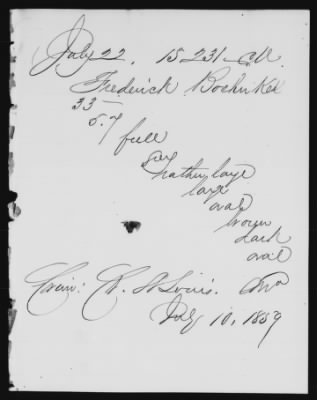 July 22. 15231
Frederick
33
5.7
full
grey
rather large
large
oval
brown
dark
oval
Crim: Ct. St Louis. Mo
July 10, 1859